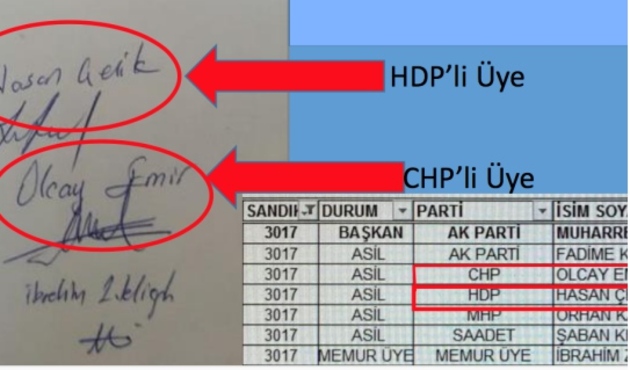 Hasan Çelik
HDP'li Üye
Olcay Emir
CHP'li Üye
ibrahim
SANDIK DURUM PARTİ İSİM SOY
3017 BAŞKAN AK PARTİ MUHARRE
3017 ASİL AK PARTİ FADİME K
3017 ASİL CHP OLCAY EM
3017 ASİL HDP HASAN Çİ
3017 ASİL MHP ORHAN K
3017 ASİL SAADET ŞABAN KI
3017 MEMUR ÜYE MEMUR ÜYE İBRAHİM